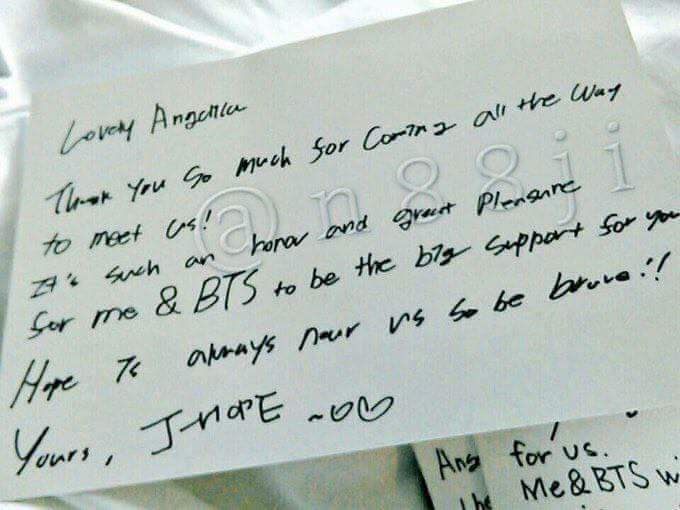 Lovely Angelica
Thank you so much for coming all the way
to meet us!
It's such an honor and great pleasure
for me & BTS to be the big support for you
Hope is always near us so be brave!!
Yours, J-HOPE ~♡♡
@n88ji
Ang
the
for us.
Me & BTS w